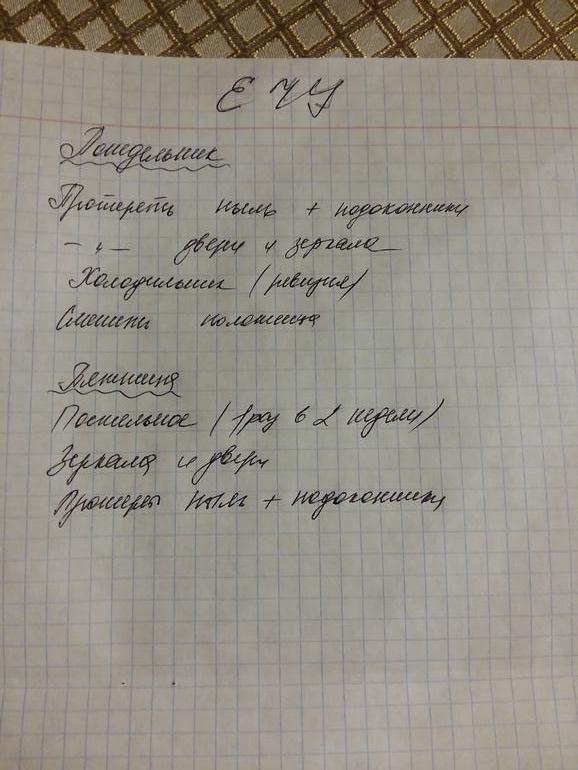 ЕЧУ
Понедельник
Протереть пыль + подоконники
– " – двери и зеркала
Холодильник (ревизия)
Сменить полотенца
Пятница
Постельное (1 раз в 2 недели)
Зеркала и двери
Протереть пыль + подоконники